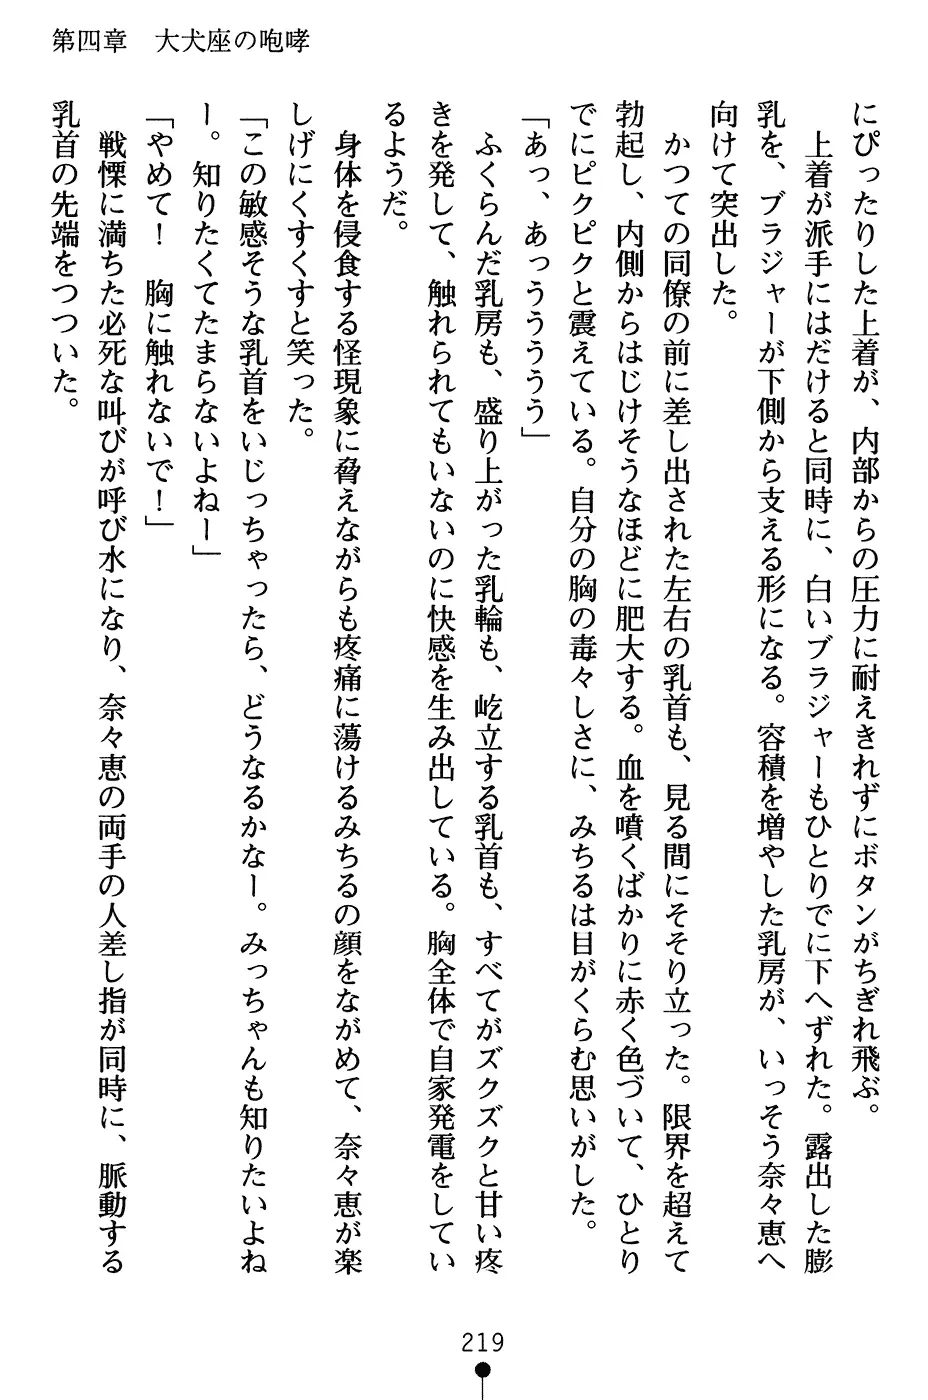 第四章　大犬座の咆哮
にぴったりした上着が、内部からの圧力に耐えきれずにボタンがちぎれ飛ぶ。
　上着が派手にはだけると同時に、白いブラジャーもひとりでに下へずれた。露出した膨
乳を、ブラジャーが下側から支える形になる。容積を増やした乳房が、いっそう奈々恵へ
向けて突出した。
　かつての同僚の前に差し出された左右の乳首も、見る間にそそり立った。限界を超えて
勃起し、内側からはじけそうなほどに肥大する。血を噴くばかりに赤く色づいて、ひとり
でにピクピクと震えている。自分の胸の毒々しさに、みちるは目がくらむ思いがした。
「あっ、あっうううう」
　ふくらんだ乳房も、盛り上がった乳輪も、屹立する乳首も、すべてがズクズクと甘い疼
きを発して、触れられてもいないのに快感を生み出している。胸全体で自家発電をしてい
るようだ。
　身体を侵食する怪現象に脅えながらも疼痛に蕩けるみちるの顔をながめて、奈々恵が楽
しげにくすくすと笑った。
「この敏感そうな乳首をいじっちゃったら、どうなるかなー。みっちゃんも知りたいよね
ー。知りたくてたまらないよねー」
「やめて！　胸に触れないで！」
　戦慄に満ちた必死な叫びが呼び水になり、奈々恵の両手の人差し指が同時に、脈動する
乳首の先端をつついた。
219